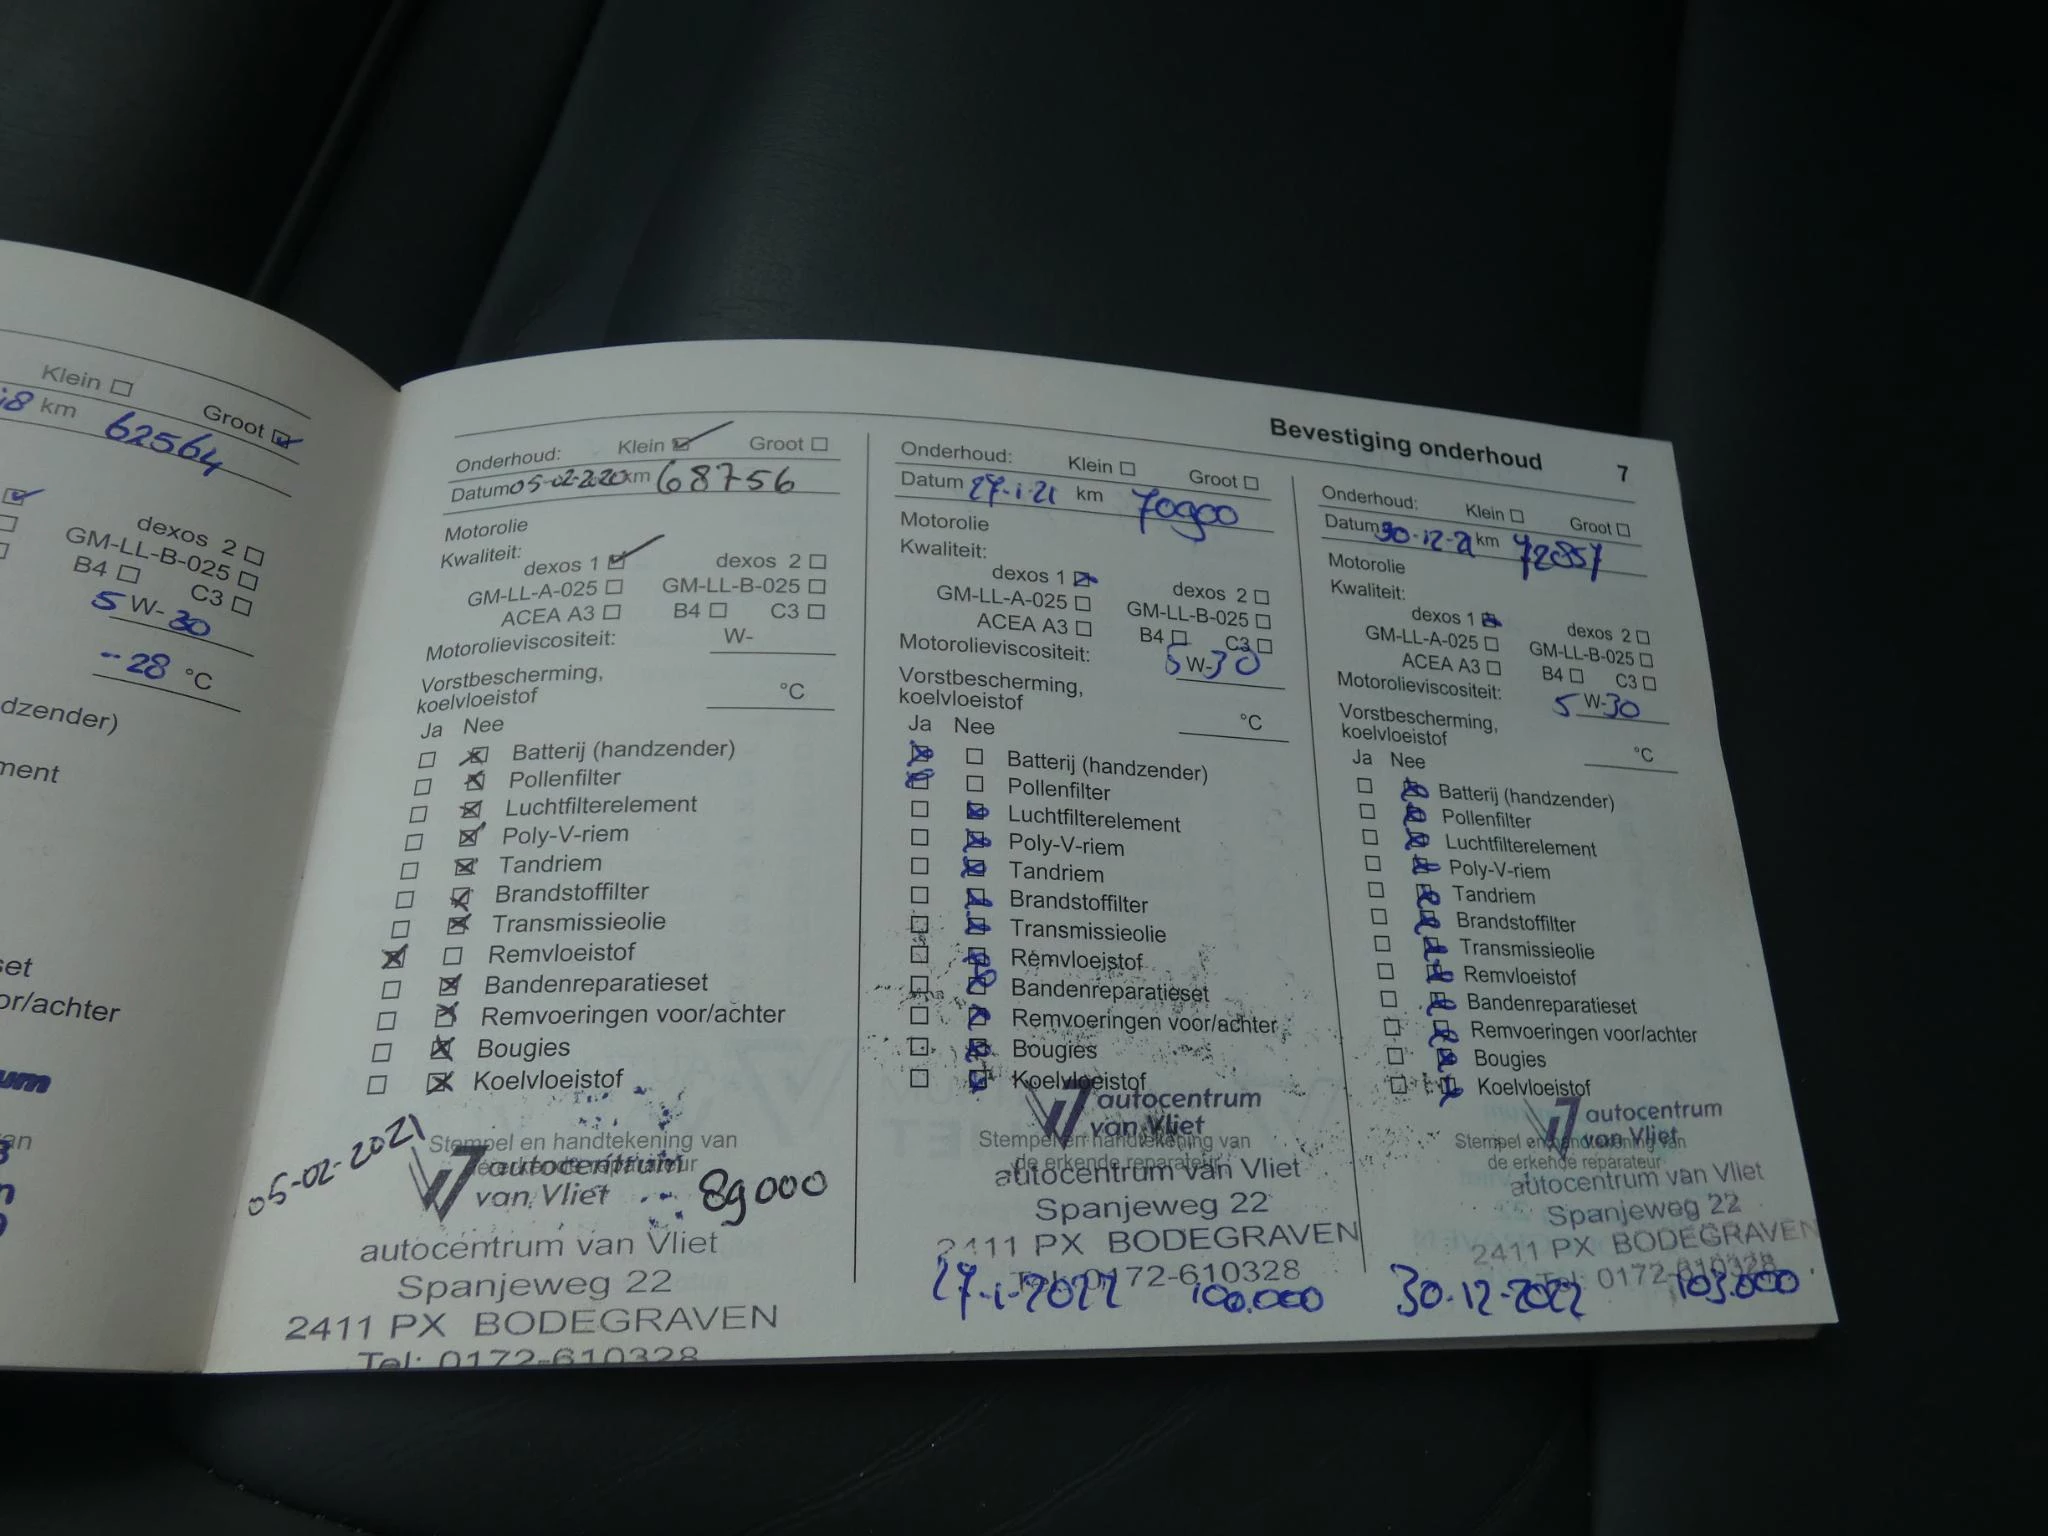 Klein
Groot
km 62564
dexos 2
GM-LL-B-025
B4 C3
5 W-30
-28 °C
dzender)
ment
set
or/achter
um
Bevestiging onderhoud 7
Onderhoud: Klein Groot
Datum 05-02-2020 km 68756
Motorolie
Kwaliteit:
dexos 1 dexos 2
GM-LL-A-025 GM-LL-B-025
ACEA A3 B4 C3
Motorolieviscositeit: W-
Vorstbescherming,
koelvloeistof °C
Ja Nee
Batterij (handzender)
Pollenfilter
Luchtfilterelement
Poly-V-riem
Tandriem
Brandstoffilter
Transmissieolie
Remvloeistof
Bandenreparatieset
Remvoeringen voor/achter
Bougies
Koelvloeistof
05-02-2021
Stempel en handtekening van
de erkende reparateur
autocentrum
van Vliet
89000
autocentrum van Vliet
Spanjeweg 22
2411 PX BODEGRAVEN
Tel: 0172-610328
Onderhoud: Klein Groot
Datum 27-1-21 km 70900
Motorolie
Kwaliteit:
dexos 1 dexos 2
GM-LL-A-025 GM-LL-B-025
ACEA A3 B4 C3
Motorolieviscositeit: 5 W-30
Vorstbescherming,
koelvloeistof °C
Ja Nee
Batterij (handzender)
Pollenfilter
Luchtfilterelement
Poly-V-riem
Tandriem
Brandstoffilter
Transmissieolie
Remvloeistof
Bandenreparatieset
Remvoeringen voor/achter
Bougies
Koelvloeistof
autocentrum
van Vliet
Stempel en handtekening van
de erkende reparateur
autocentrum van Vliet
Spanjeweg 22
2411 PX BODEGRAVEN
Tel: 0172-610328
27-1-2022 100.000
Onderhoud: Klein Groot
Datum 30-12-21 km 72857
Motorolie
Kwaliteit:
dexos 1 dexos 2
GM-LL-A-025 GM-LL-B-025
ACEA A3 B4 C3
Motorolieviscositeit: 5 W-30
Vorstbescherming,
koelvloeistof °C
Ja Nee
Batterij (handzender)
Pollenfilter
Luchtfilterelement
Poly-V-riem
Tandriem
Brandstoffilter
Transmissieolie
Remvloeistof
Bandenreparatieset
Remvoeringen voor/achter
Bougies
Koelvloeistof
autocentrum
van Vliet
Stempel en handtekening van
de erkende reparateur
autocentrum van Vliet
Spanjeweg 22
2411 PX BODEGRAVEN
Tel: 0172-610328
30-12-2022 103.000